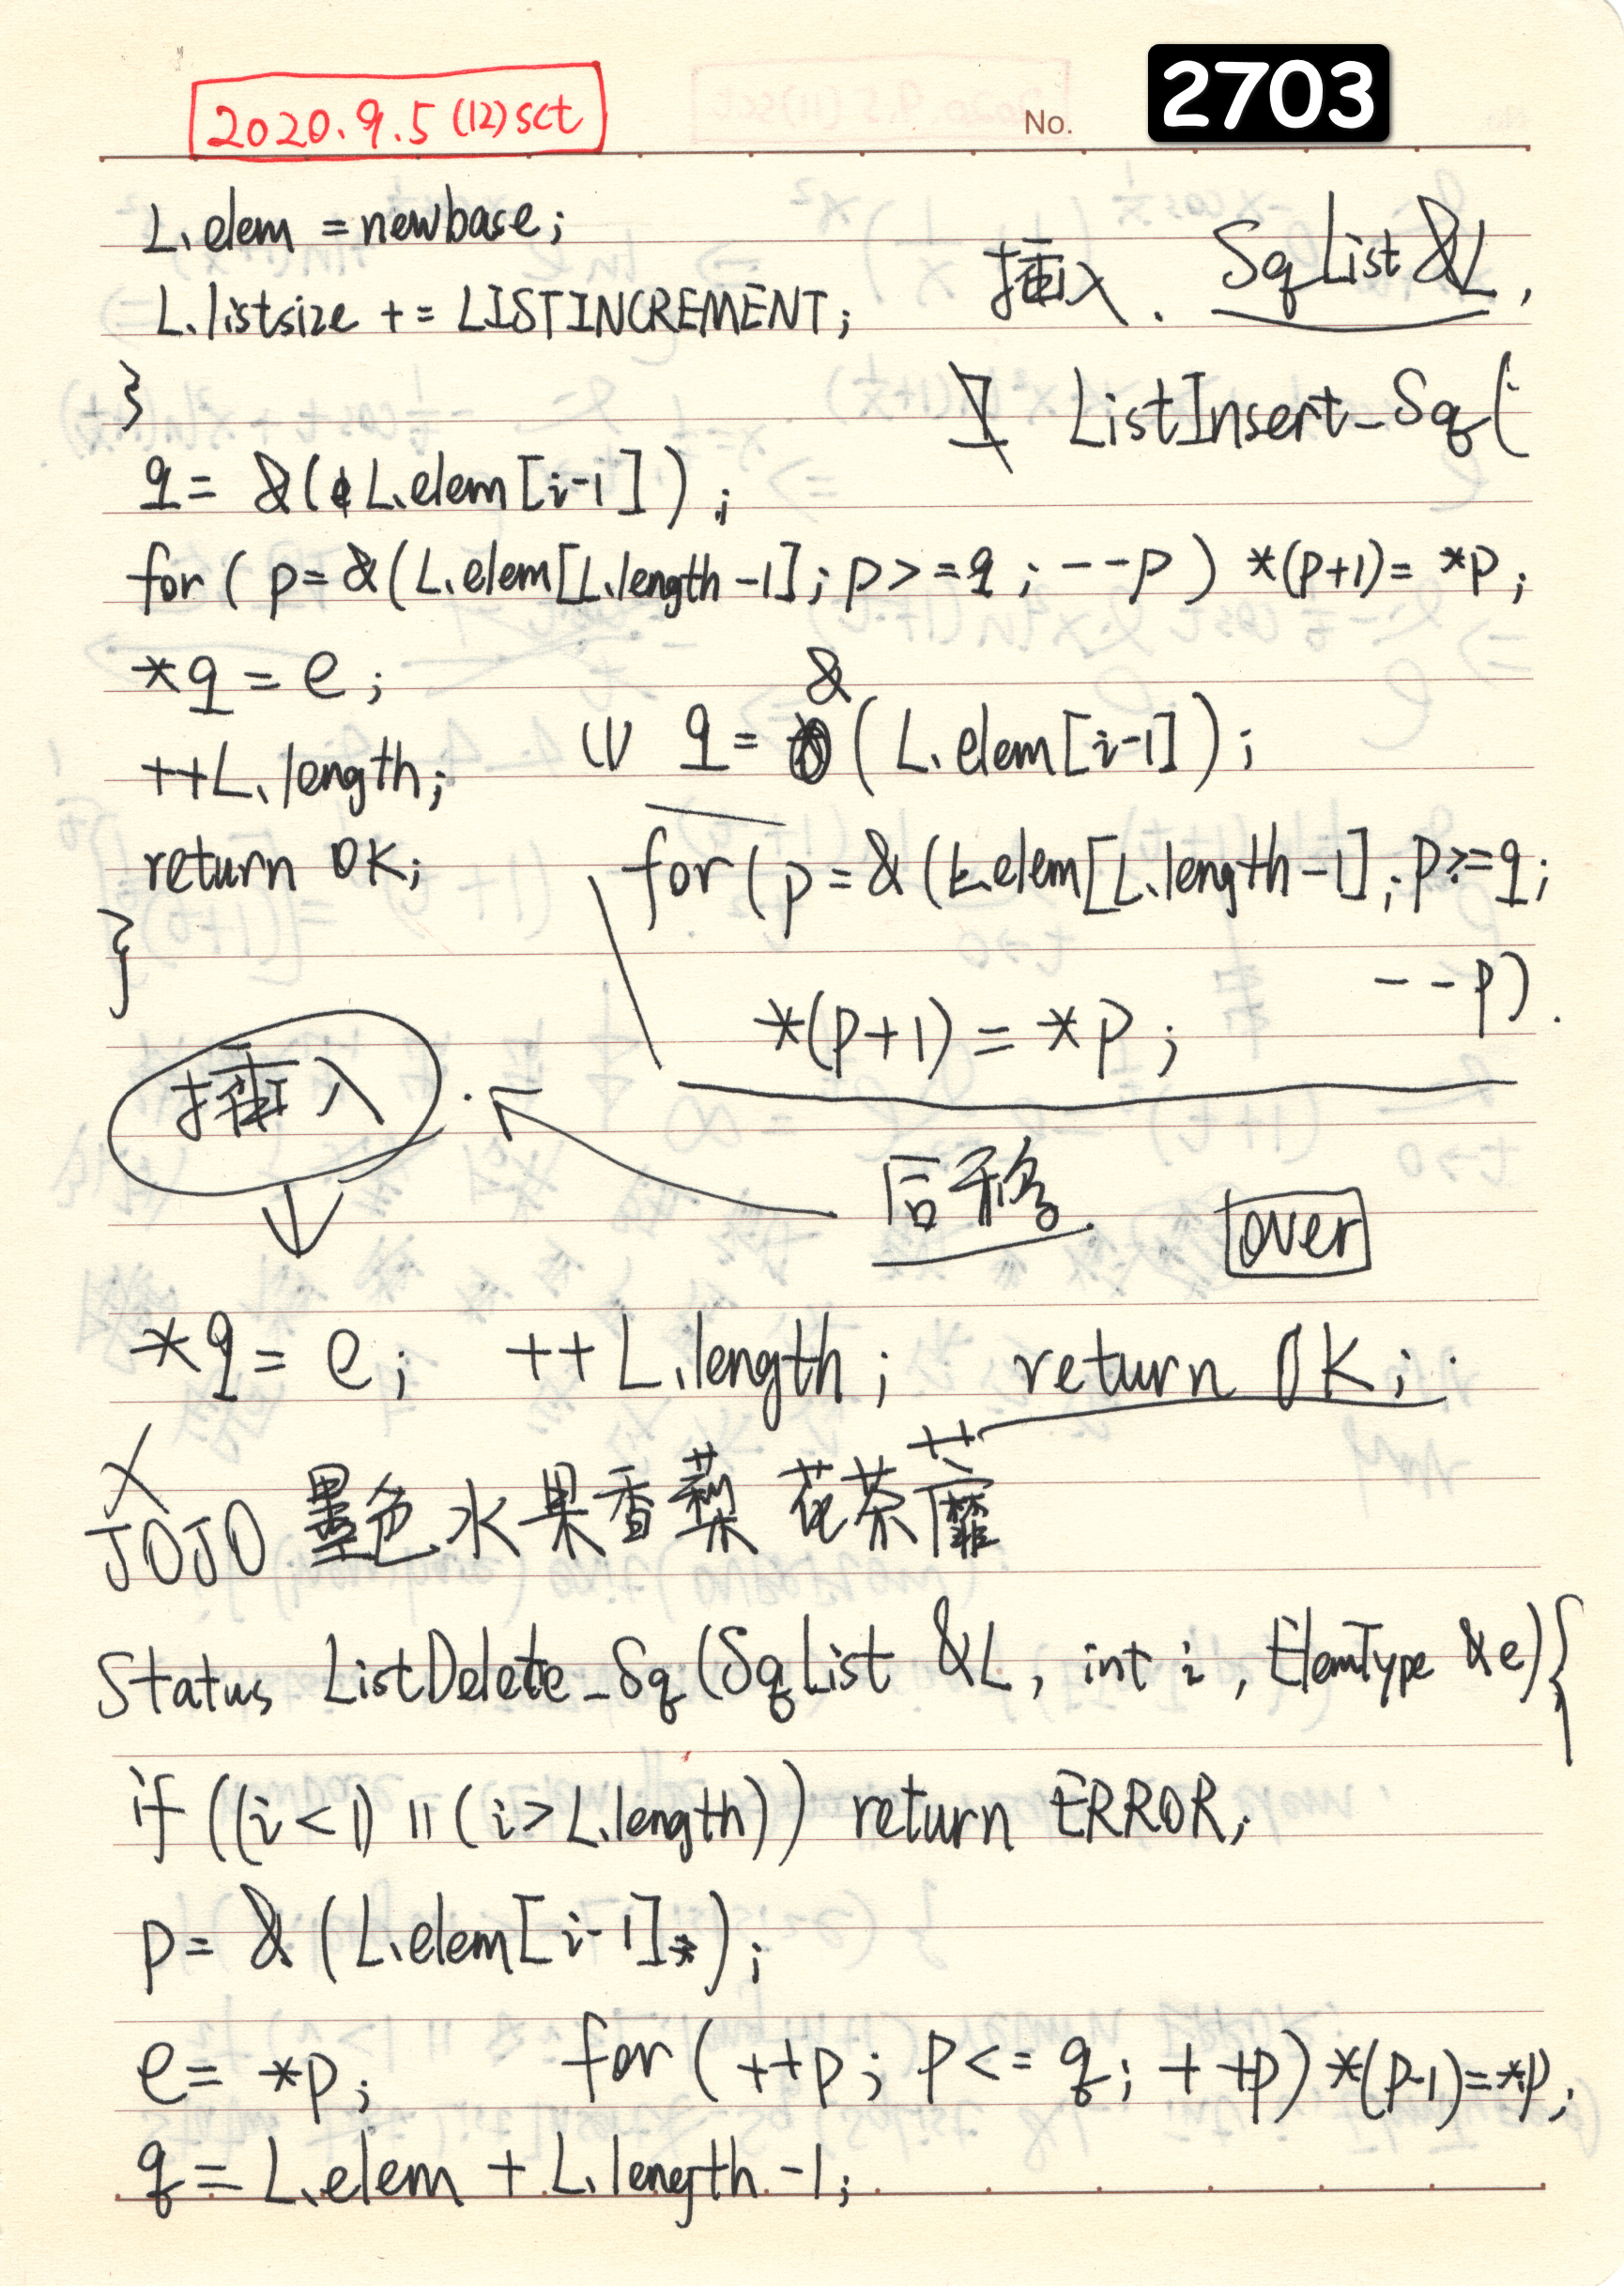 2020.9.5 (12) sct
No. 2703
L.elem = newbase;
L.listsize += LISTINCREMENT;
}
插入. SqList &L,
ListInsert_Sq(
q = &(L.elem[i-1]);
for (p=&(L.elem[L.length-1]; p>=q; --p) *(p+1)= *p;
*q = e;
++L.length;
return OK;
}
&
q = (L.elem[i-1]);
for (p=&(L.elem[L.length-1]; p>=q;
--p).
*(p+1) = *p;
插入.
后移.
over
*q = e; ++L.length; return OK;
JOJO 墨色水果香梨 花荼蘼
Status ListDelete_Sq(SqList &L, int i, ElemType &e){
if ((i<1) || (i>L.length)) return ERROR;
p= &(L.elem[i-1]);
e= *p; for(++p; p<=q; ++p) *(p-1)=*p;
q = L.elem + L.length-1;